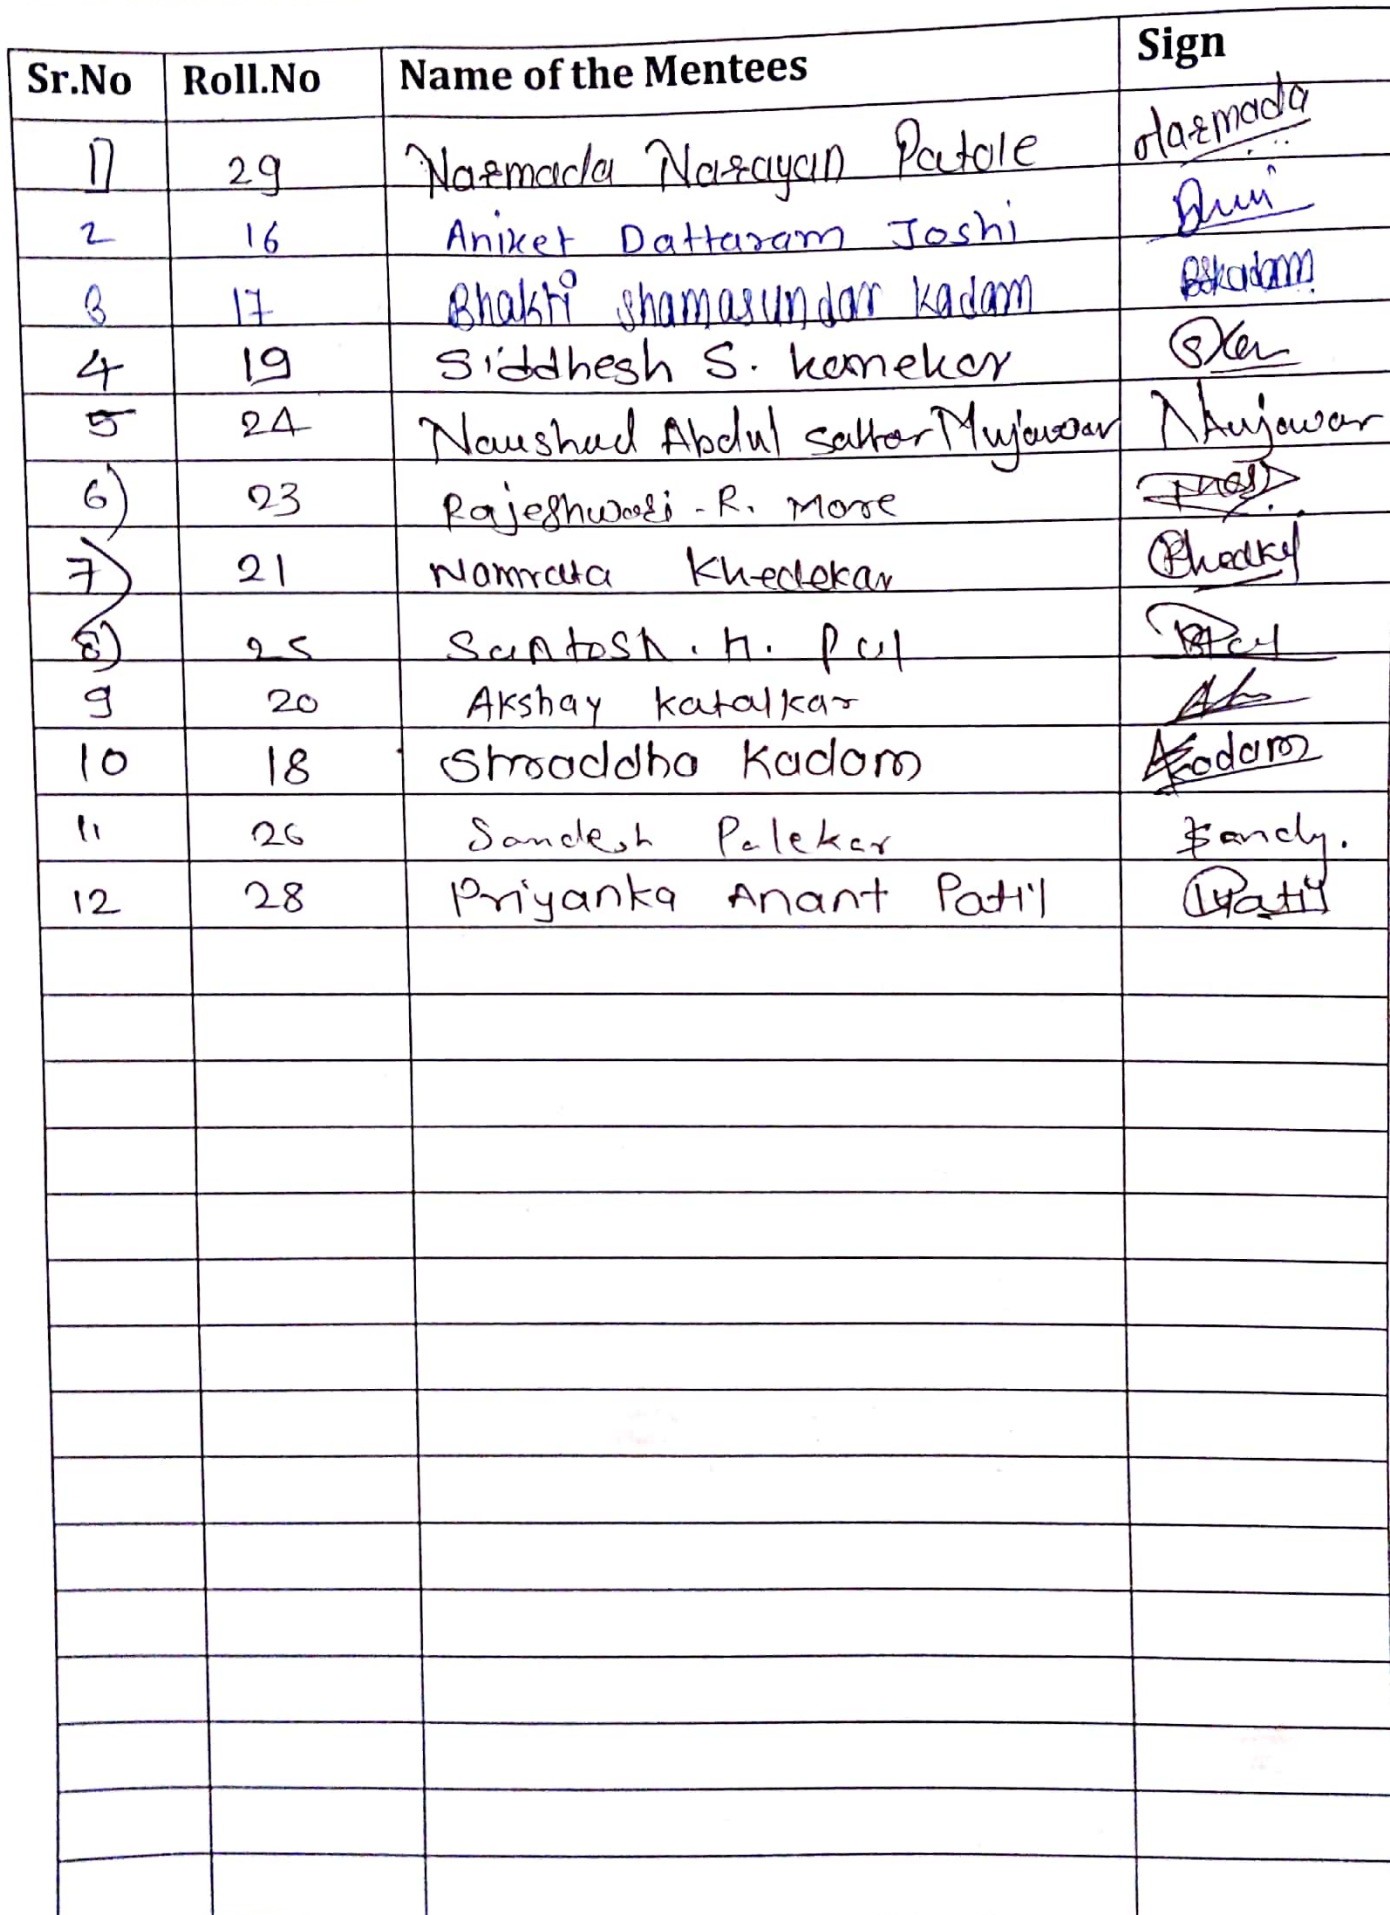 Sr.No Roll.No Name of the Mentees Sign
1] 29 Narmada Narayan Patole Narmada
2 16 Aniket Dattaram Joshi
3 17 Bhakti shamasundar kadam BSkadam
4 19 Siddhesh S. kamekar
5 24 Naushad Abdul sattar Mujawar NMujawar
6) 23 Rajeshwari - R. More
7) 21 Namrata Khedekar
8) 25 Santosh. H. Pal
9 20 Akshay katalkar
10 18 Shraddha Kadam Kadam
11 26 Sandesh Palekar Sandy.
12 28 Priyanka Anant Patil Patil